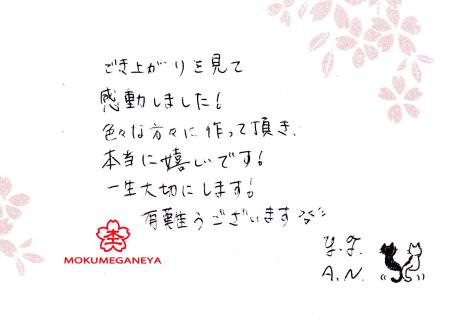 でき上がりを見て
感動しました!
色々な方々に作って頂き、
本当に嬉しいです!
一生大切にします!
有難うございます
MOKUMEGANEYA
Y.T.
A.N.